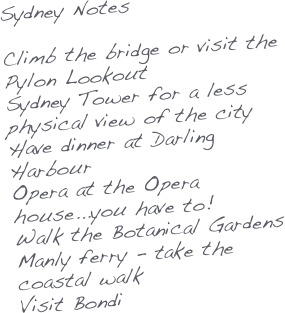 Sydney Notes
Climb the bridge or visit the
Pylon Lookout
Sydney Tower for a less
physical view of the city
Have dinner at Darling
Harbour
Opera at the Opera
house...you have to!
Walk the Botanical Gardens
Manly ferry - take the
coastal walk
Visit Bondi